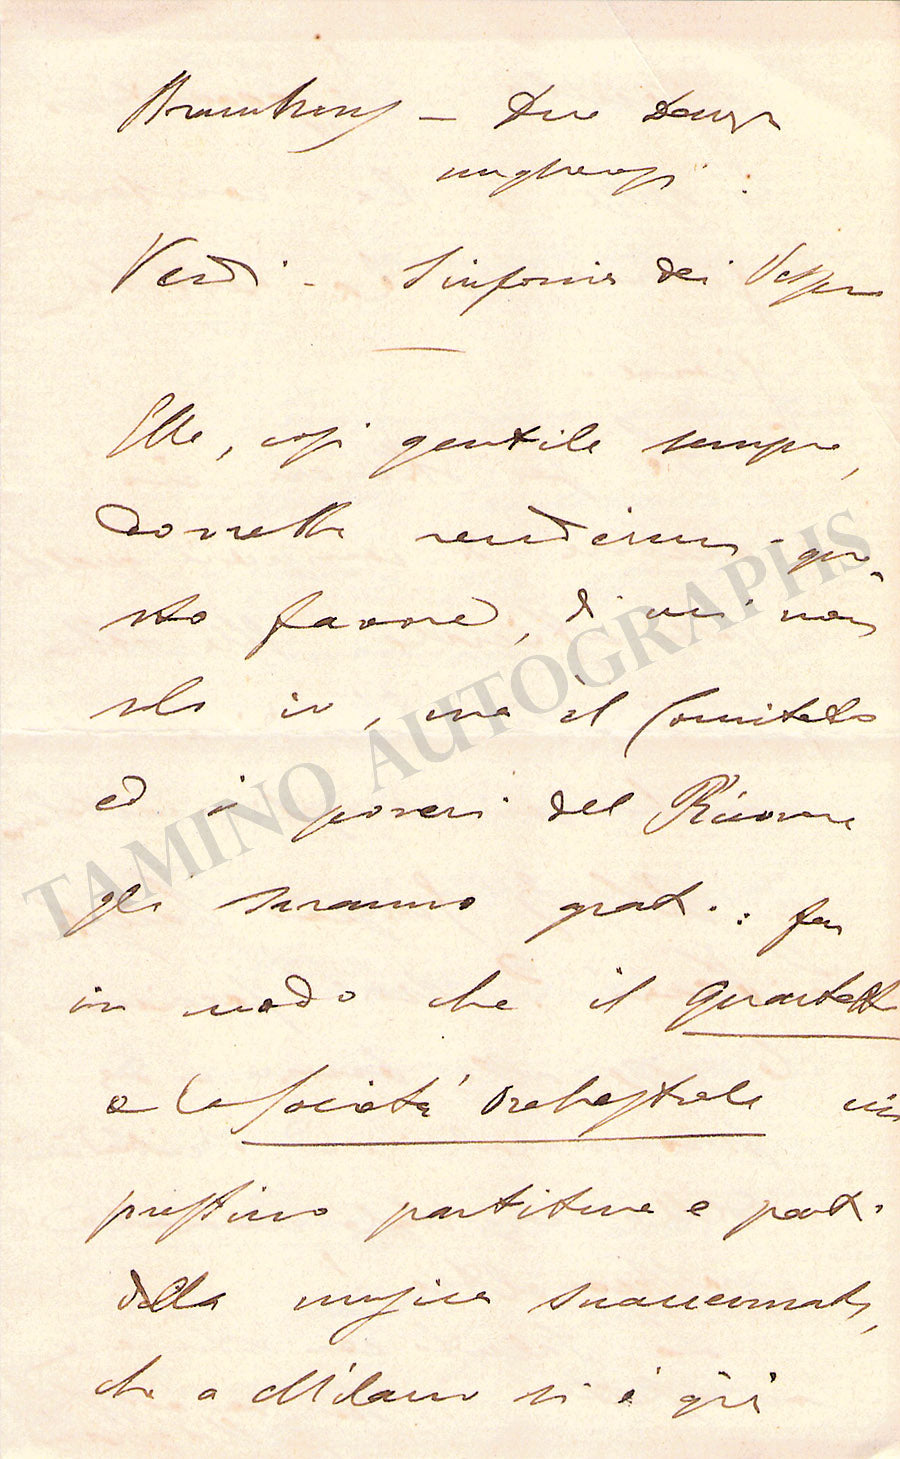 – Due Danze
ungheresi.
Verdi – Sinfonia dei Vespri
Ella, così gentile sempre,
dovrebbe rendermi que-
sto favore, di cui non
solo io, ma il Comitato
ed i poveri del Ricovero
gli saranno grati: far
in modo che il Quartetto
o la Società Orchestrale mi
prestino partiture e parti
della musica suaccennata,
che a Milano si è già
TAMINO AUTOGRAPHS